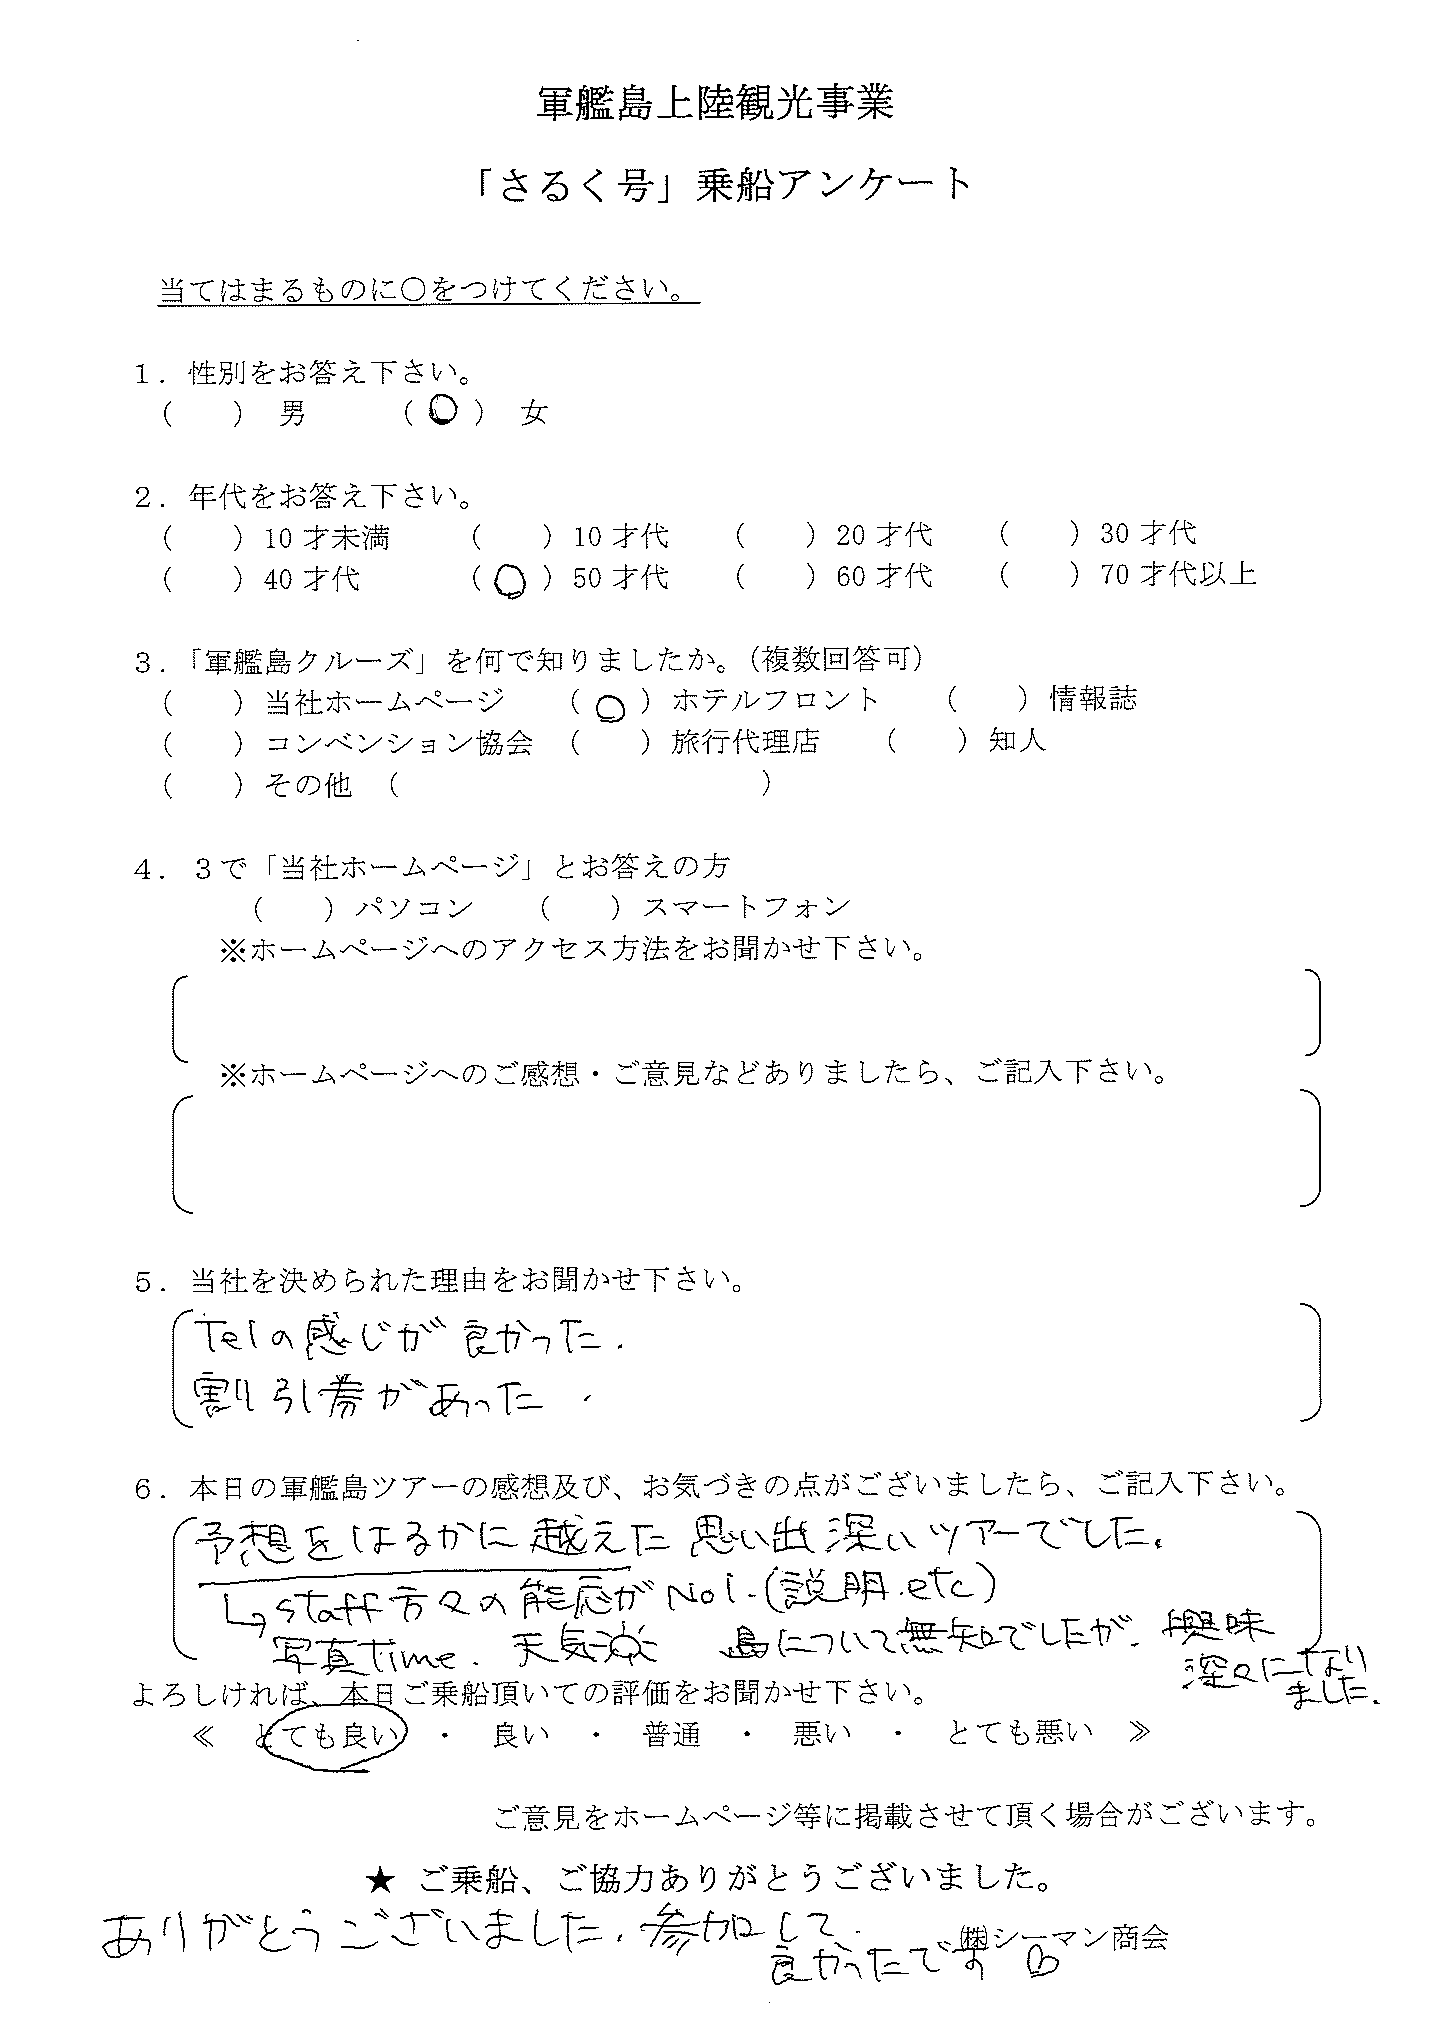 軍艦島上陸観光事業
「さるく号」乗船アンケート
当てはまるものに○をつけてください。
１．性別をお答え下さい。
（　　）　男　　　（ ○ ）　女
２．年代をお答え下さい。
（　　）10才未満　　（　　）10才代　　（　　）20才代　　（　　）30才代
（　　）40才代　　（ ○ ）50才代　　（　　）60才代　　（　　）70才代以上
３．「軍艦島クルーズ」を何で知りましたか。（複数回答可）
（　　）当社ホームページ　　（ ○ ）ホテルフロント　　（　　）情報誌
（　　）コンベンション協会　（　　）旅行代理店　　（　　）知人
（　　）その他　（　　　　　　　　　　　　）
４．３で「当社ホームページ」とお答えの方
（　　）パソコン　　（　　）スマートフォン
※ホームページへのアクセス方法をお聞かせ下さい。
※ホームページへのご感想・ご意見などありましたら、ご記入下さい。
５．当社を決められた理由をお聞かせ下さい。
Telの感じが良かった.
割引券があった.
６．本日の軍艦島ツアーの感想及び、お気づきの点がございましたら、ご記入下さい。
予想をはるかに越えた思い出深いツアーでした。
↳staff方々の能応がNo1.(説明.etc)
写真time. 天気 島について無知でしたが. 興味
深々になり
ました.
よろしければ、本日ご乗船頂いての評価をお聞かせ下さい。
≪　とても良い　・　良い　・　普通　・　悪い　・　とても悪い　≫
ご意見をホームページ等に掲載させて頂く場合がございます。
★ ご乗船、ご協力ありがとうございました。
ありがとうございました. 参加して.
㈱シーマン商会
良かったです